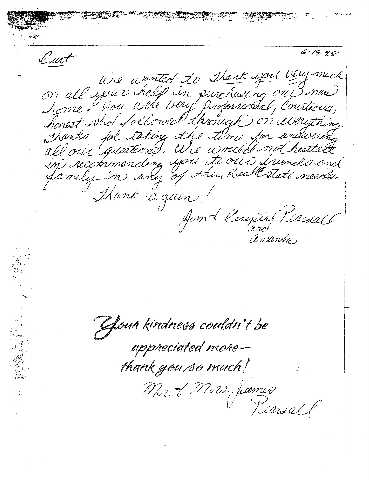 Curt
We wanted to thank you very much
on all your help in purchasing our new
home. You were very professional, courteous,
honest and followed through on everything
thanks for taking the time for answering
all our questions. We would not hesitate
in recommending you to our friends and
family in any of their Real Estate needs.
Thank again!
Jim &
and
Amanda
Your kindness couldn't be
appreciated more—
thank you so much!
Mr. & Mrs. James